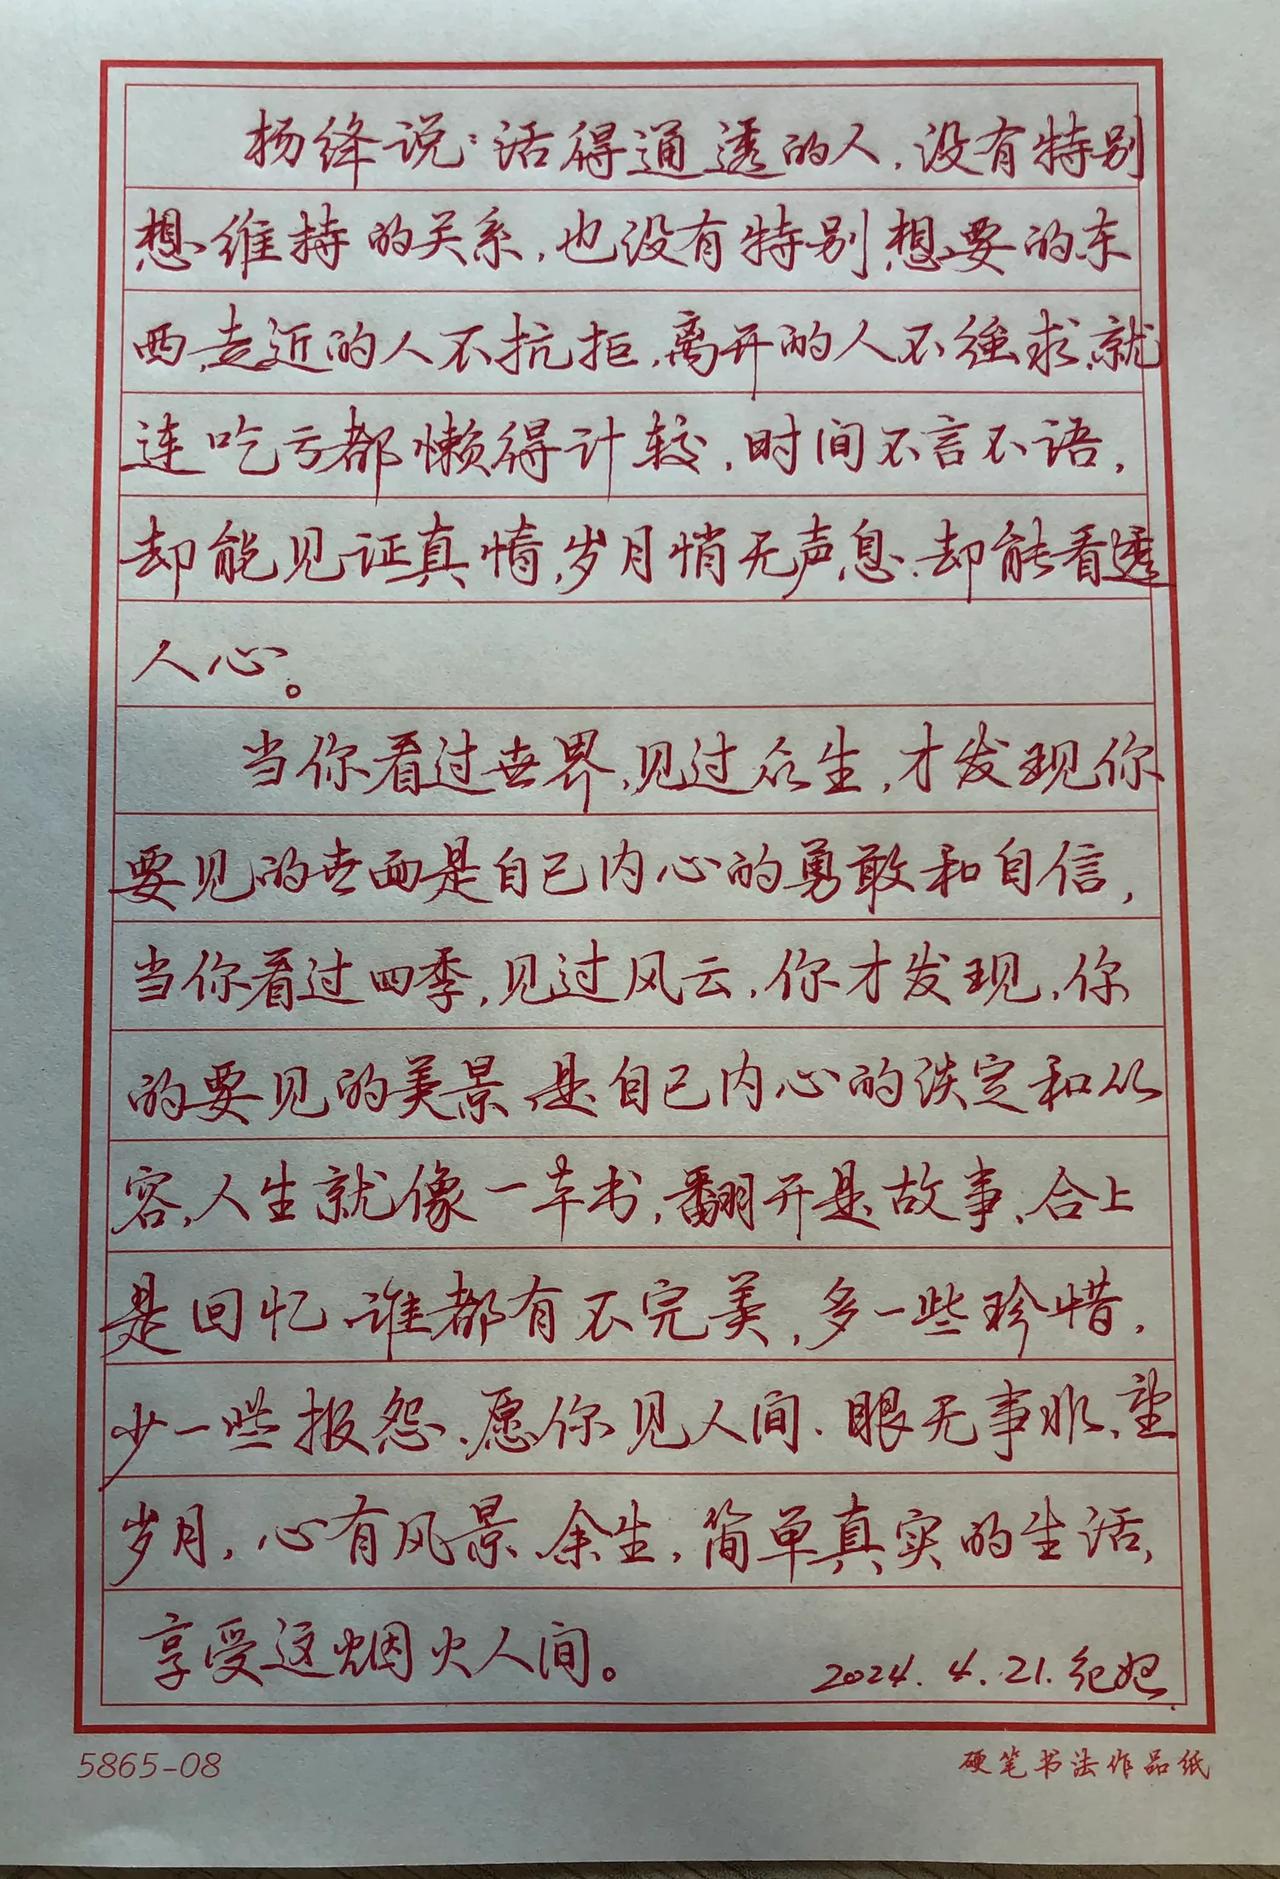 杨绛说：活得通透的人，没有特别
想维持的关系，也没有特别想要的东
西，走近的人不抗拒，离开的人不强求，就
连吃亏都懒得计较，时间不言不语，
却能见证真情，岁月悄无声息，却能看透
人心。
当你看过世界，见过众生，才发现你
要见的世面是自己内心的勇敢和自信，
当你看过四季，见过风云，你才发现，你
的要见的美景，是自己内心的淡定和从
容，人生就像一本书，翻开是故事、合上
是回忆，谁都有不完美，多一些珍惜，
少一些报怨、愿你见人间、眼无事非、望
岁月，心有风景，余生，简单真实的生活，
享受这烟火人间。
2024.4.21.
5865-08
硬笔书法作品纸